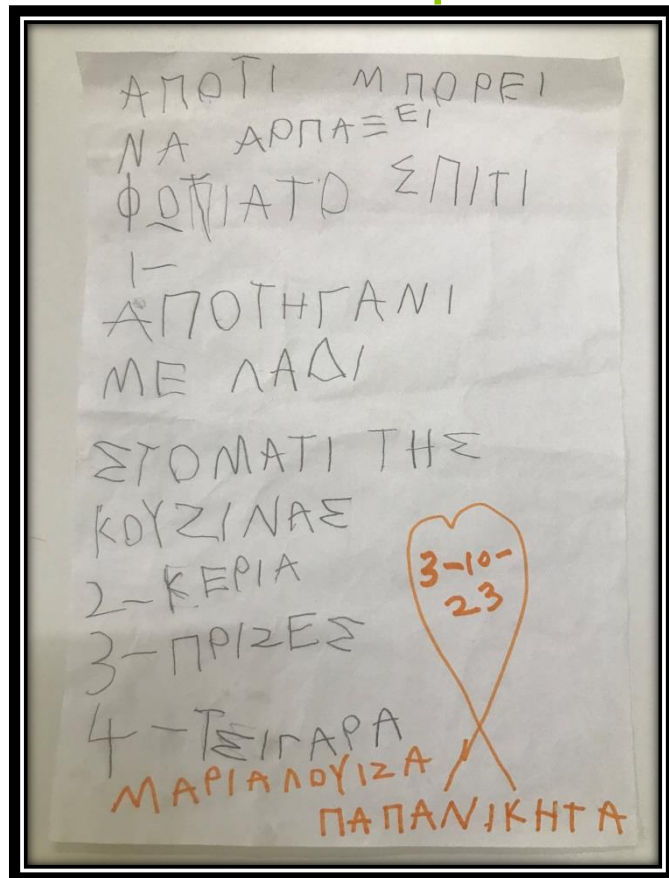 ΑΠΟΤΙ ΜΠΟΡΕΙ
ΝΑ ΑΡΠΑΞΕΙ
ΦΩΤΙΑΤΟ ΣΠΙΤΙ
1-
ΑΠΟΤΗΓΑΝΙ
ΜΕ ΛΑΔΙ
ΣΤΟΜΑΤΙ ΤΗΣ
ΚΟΥΖΙΝΑΣ
2-ΚΕΡΙΑ
3-ΠΡΙΖΕΣ
4-ΤΣΙΓΑΡΑ
3-10-
23
ΜΑΡΙΑΛΟΥΙΖΑ
ΠΑΠΑΝΙΚΗΤΑ